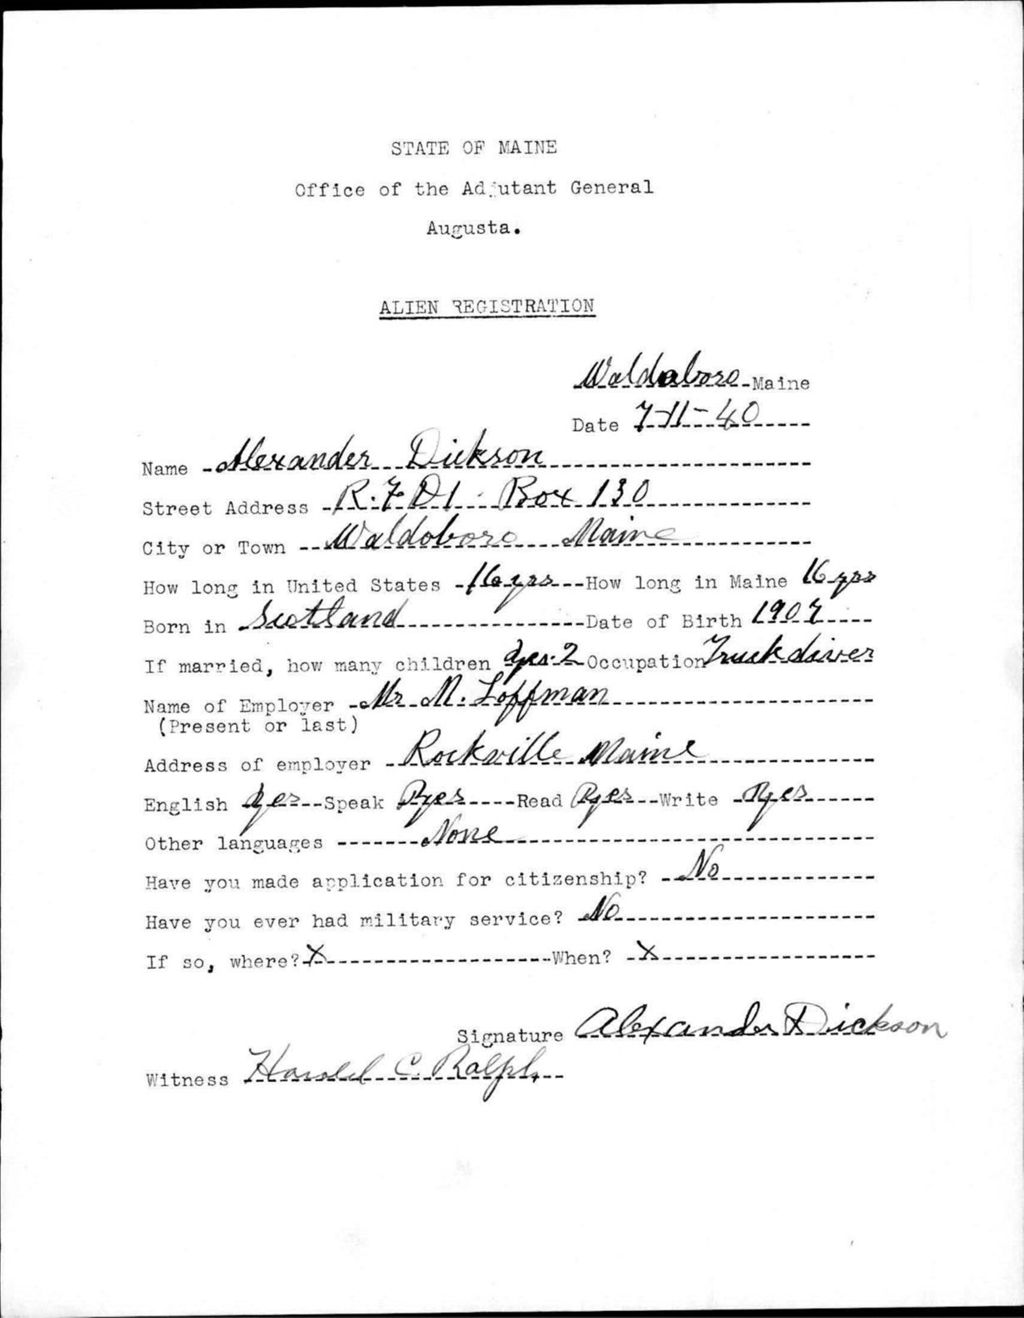 STATE OF MAINE
Office of the Adjutant General
Augusta.
ALIEN REGISTRATION
Waldoboro Maine
Date 7-11-40
Name Alexander Dickson
Street Address R.F.D 1. Box 130
City or Town Waldoboro Maine
How long in United States 16 yrs How long in Maine 16 yrs
Born in Scotland Date of Birth 1907
If married, how many children yes. 2 Occupation Truck driver
Name of Employer Mr M. Loffman
(Present or last)
Address of employer Rockville Maine
English yes Speak yes Read yes Write yes
Other languages None
Have you made application for citizenship? No
Have you ever had military service? No
If so, where? X When? X
Signature Alexander Dickson
Witness Harold C. Ralph